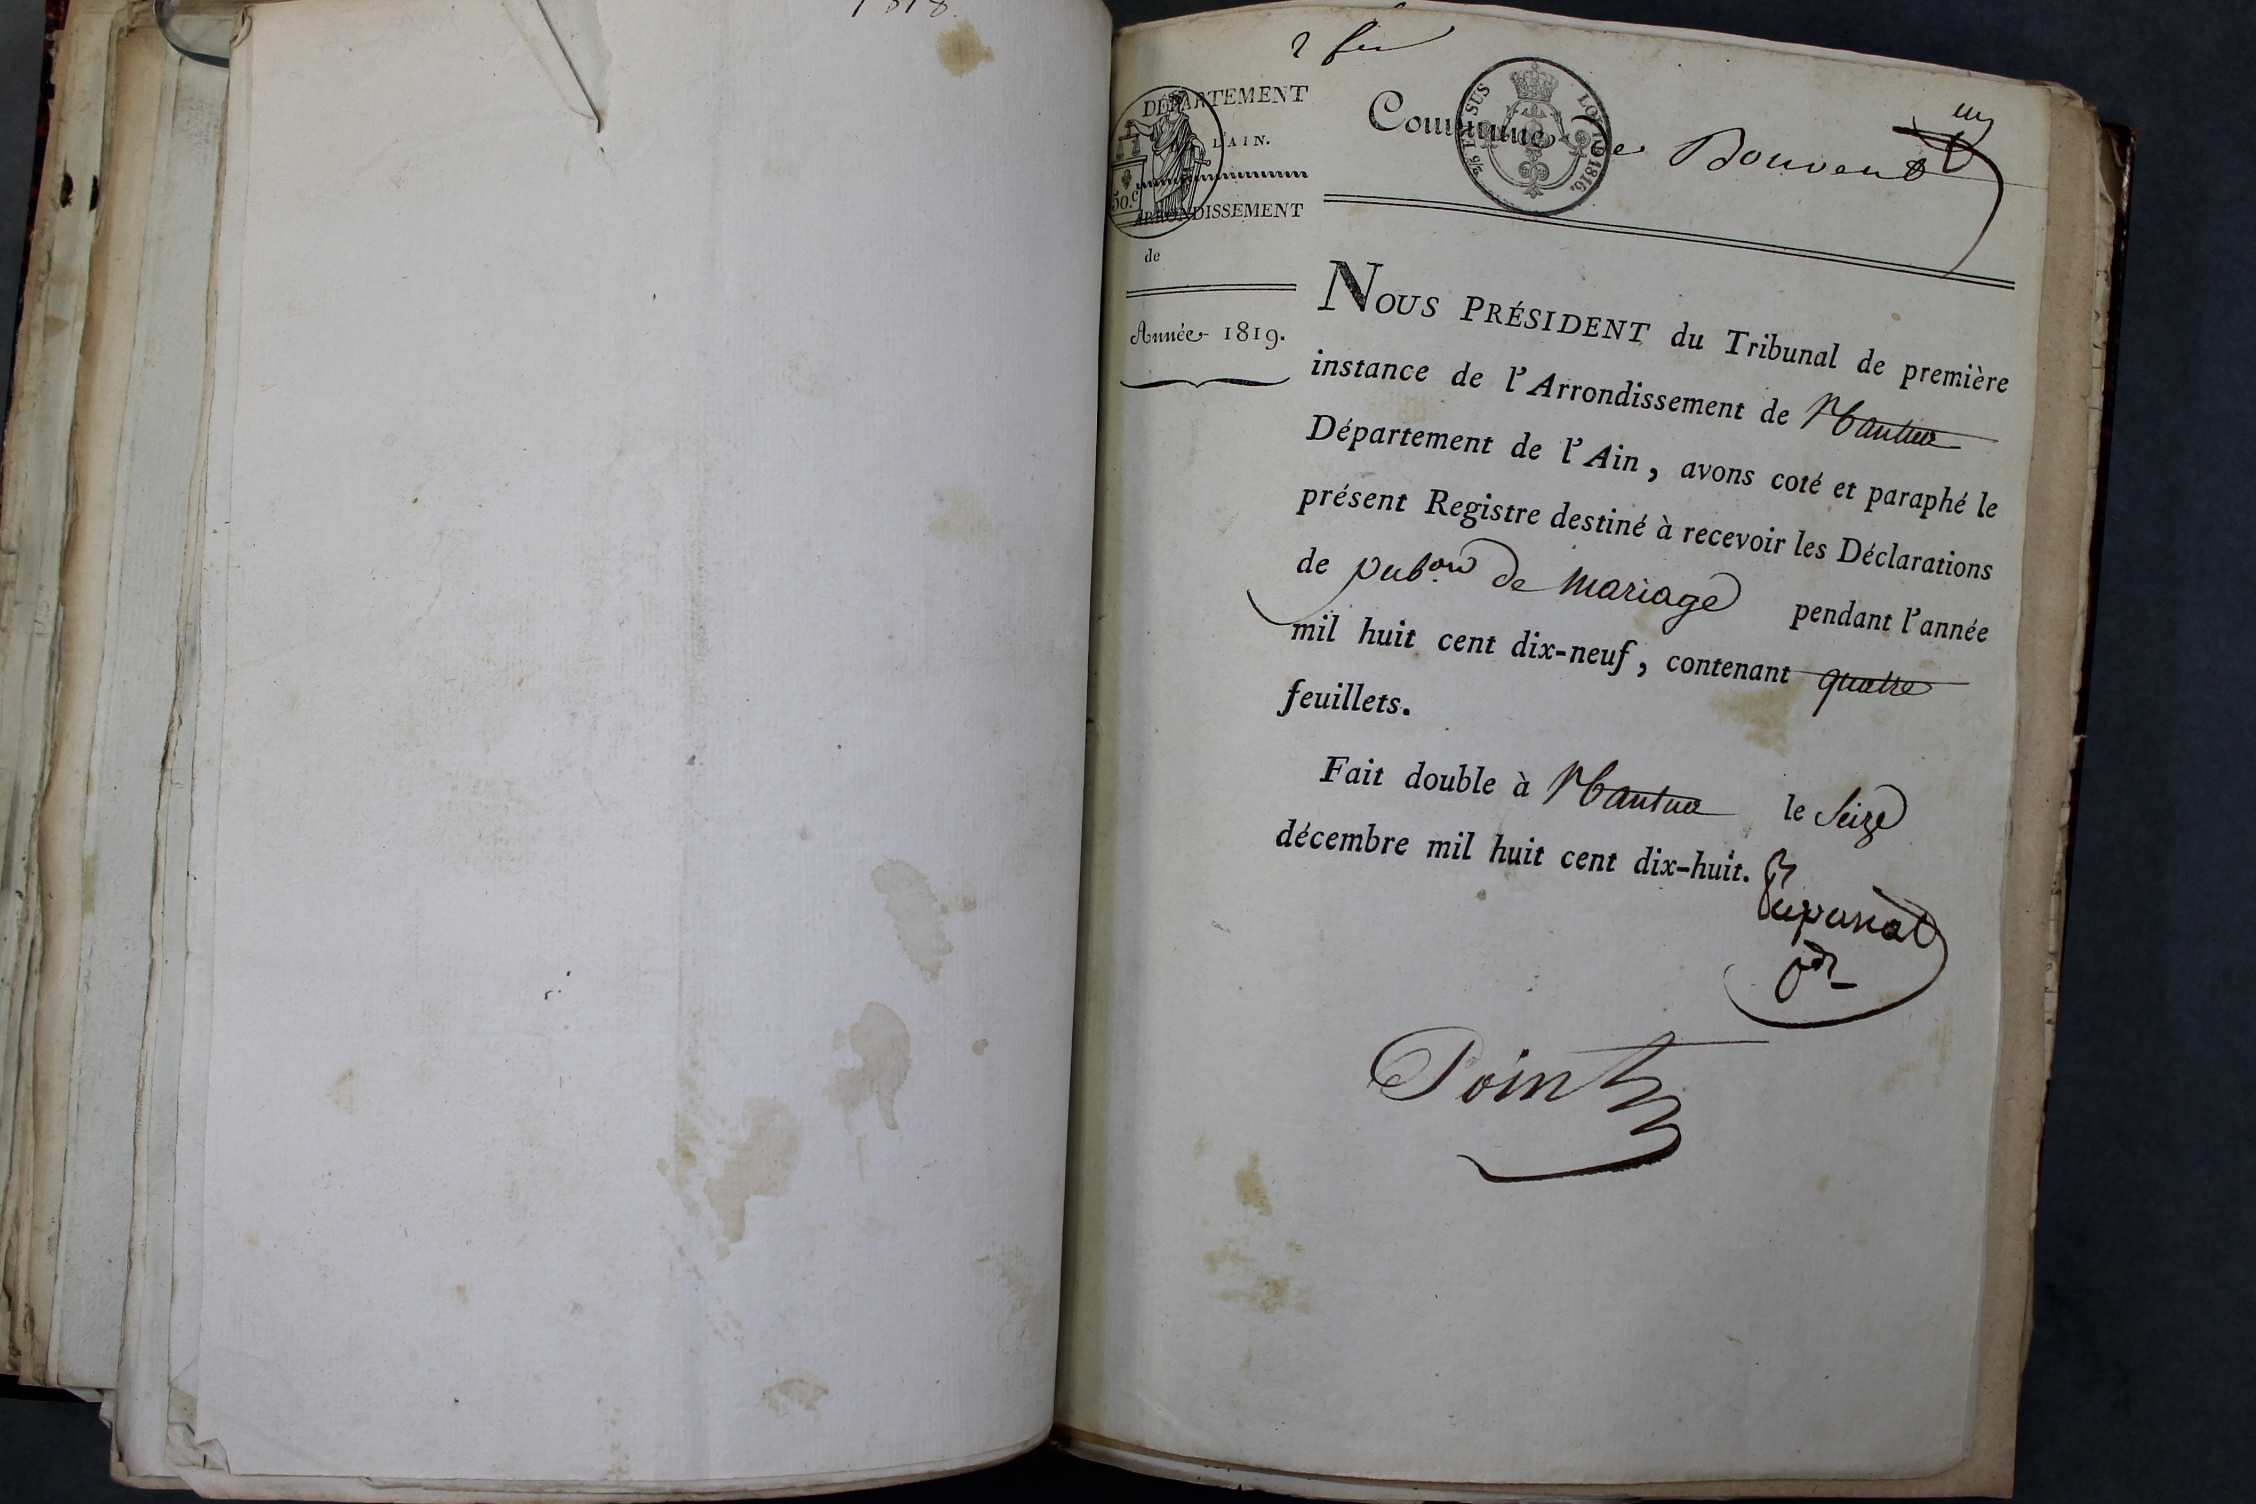 1818.
2 fr
DÉPARTEMENT
L'AIN.
50.c
ARRONDISSEMENT
de
Année 1819.
Commune de Bouvent
2/6 EN SUS
LOI DE 1816.
un
NOUS PRÉSIDENT du Tribunal de première
instance de l'Arrondissement de Nantua
Département de l'Ain, avons coté et paraphé le
présent Registre destiné à recevoir les Déclarations
de pub.on de mariage pendant l'année
mil huit cent dix-neuf, contenant quatre
feuillets.
Fait double à Nantua le Seize
décembre mil huit cent dix-huit.
Point